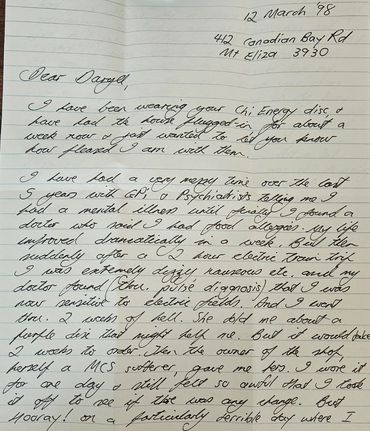 12 March '98
412 Canadian Bay Rd
Mt Eliza 3930
Dear Darryl,
I have been wearing your Chi Energy disc, &
have had the house plugged-in for about a
week now & just wanted to let you know
how pleased I am with them.
I have had a very messy time over the last
5 years with GPs & Psychiatrists telling me I
had a mental illness until finally I found a
doctor who said I had food allergies. My life
improved dramatically in a week. But then
suddenly after a 2 hour electric train trip
I was extremely dizzy nauseous etc. and my
doctor found (thru. pulse diagnosis) that I was
now sensitive to electric fields. And I went
thru. 2 weeks of hell. She told me about a
purple disc that might help me. But it would take
2 weeks to order. Then the owner of the shop,
herself a MCS sufferer, gave me hers. I wore it
for one day & still felt so awful that I took
it off to see if there was any change. But
Hooray! on a particularly terrible day where I